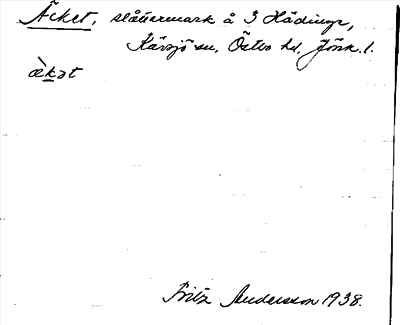 Äcket, slåttermark å 3 Hädinge,
Kärsjö sn. Östra hd. Jönk. l.
œ̀kət
Fritz Andersson 1938.